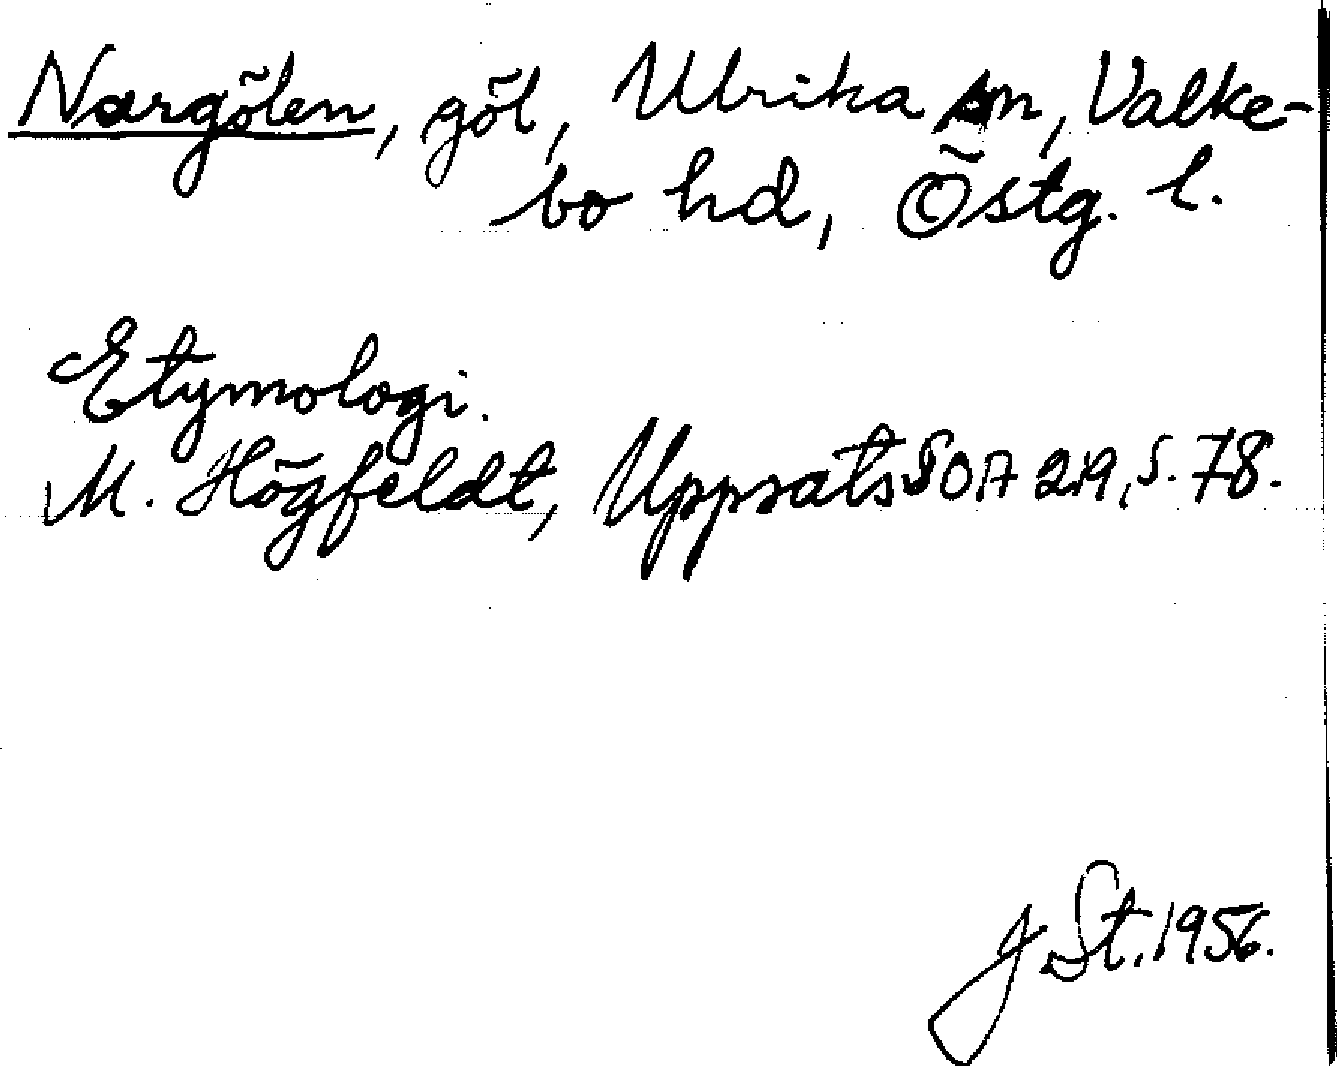 Nargölen, göl, Ulrika sn, Valke-
bo hd, Östg. l.
Etymologi.
M. Högfeldt, Uppsats SOA 219, s. 78.
J. St. 1956.